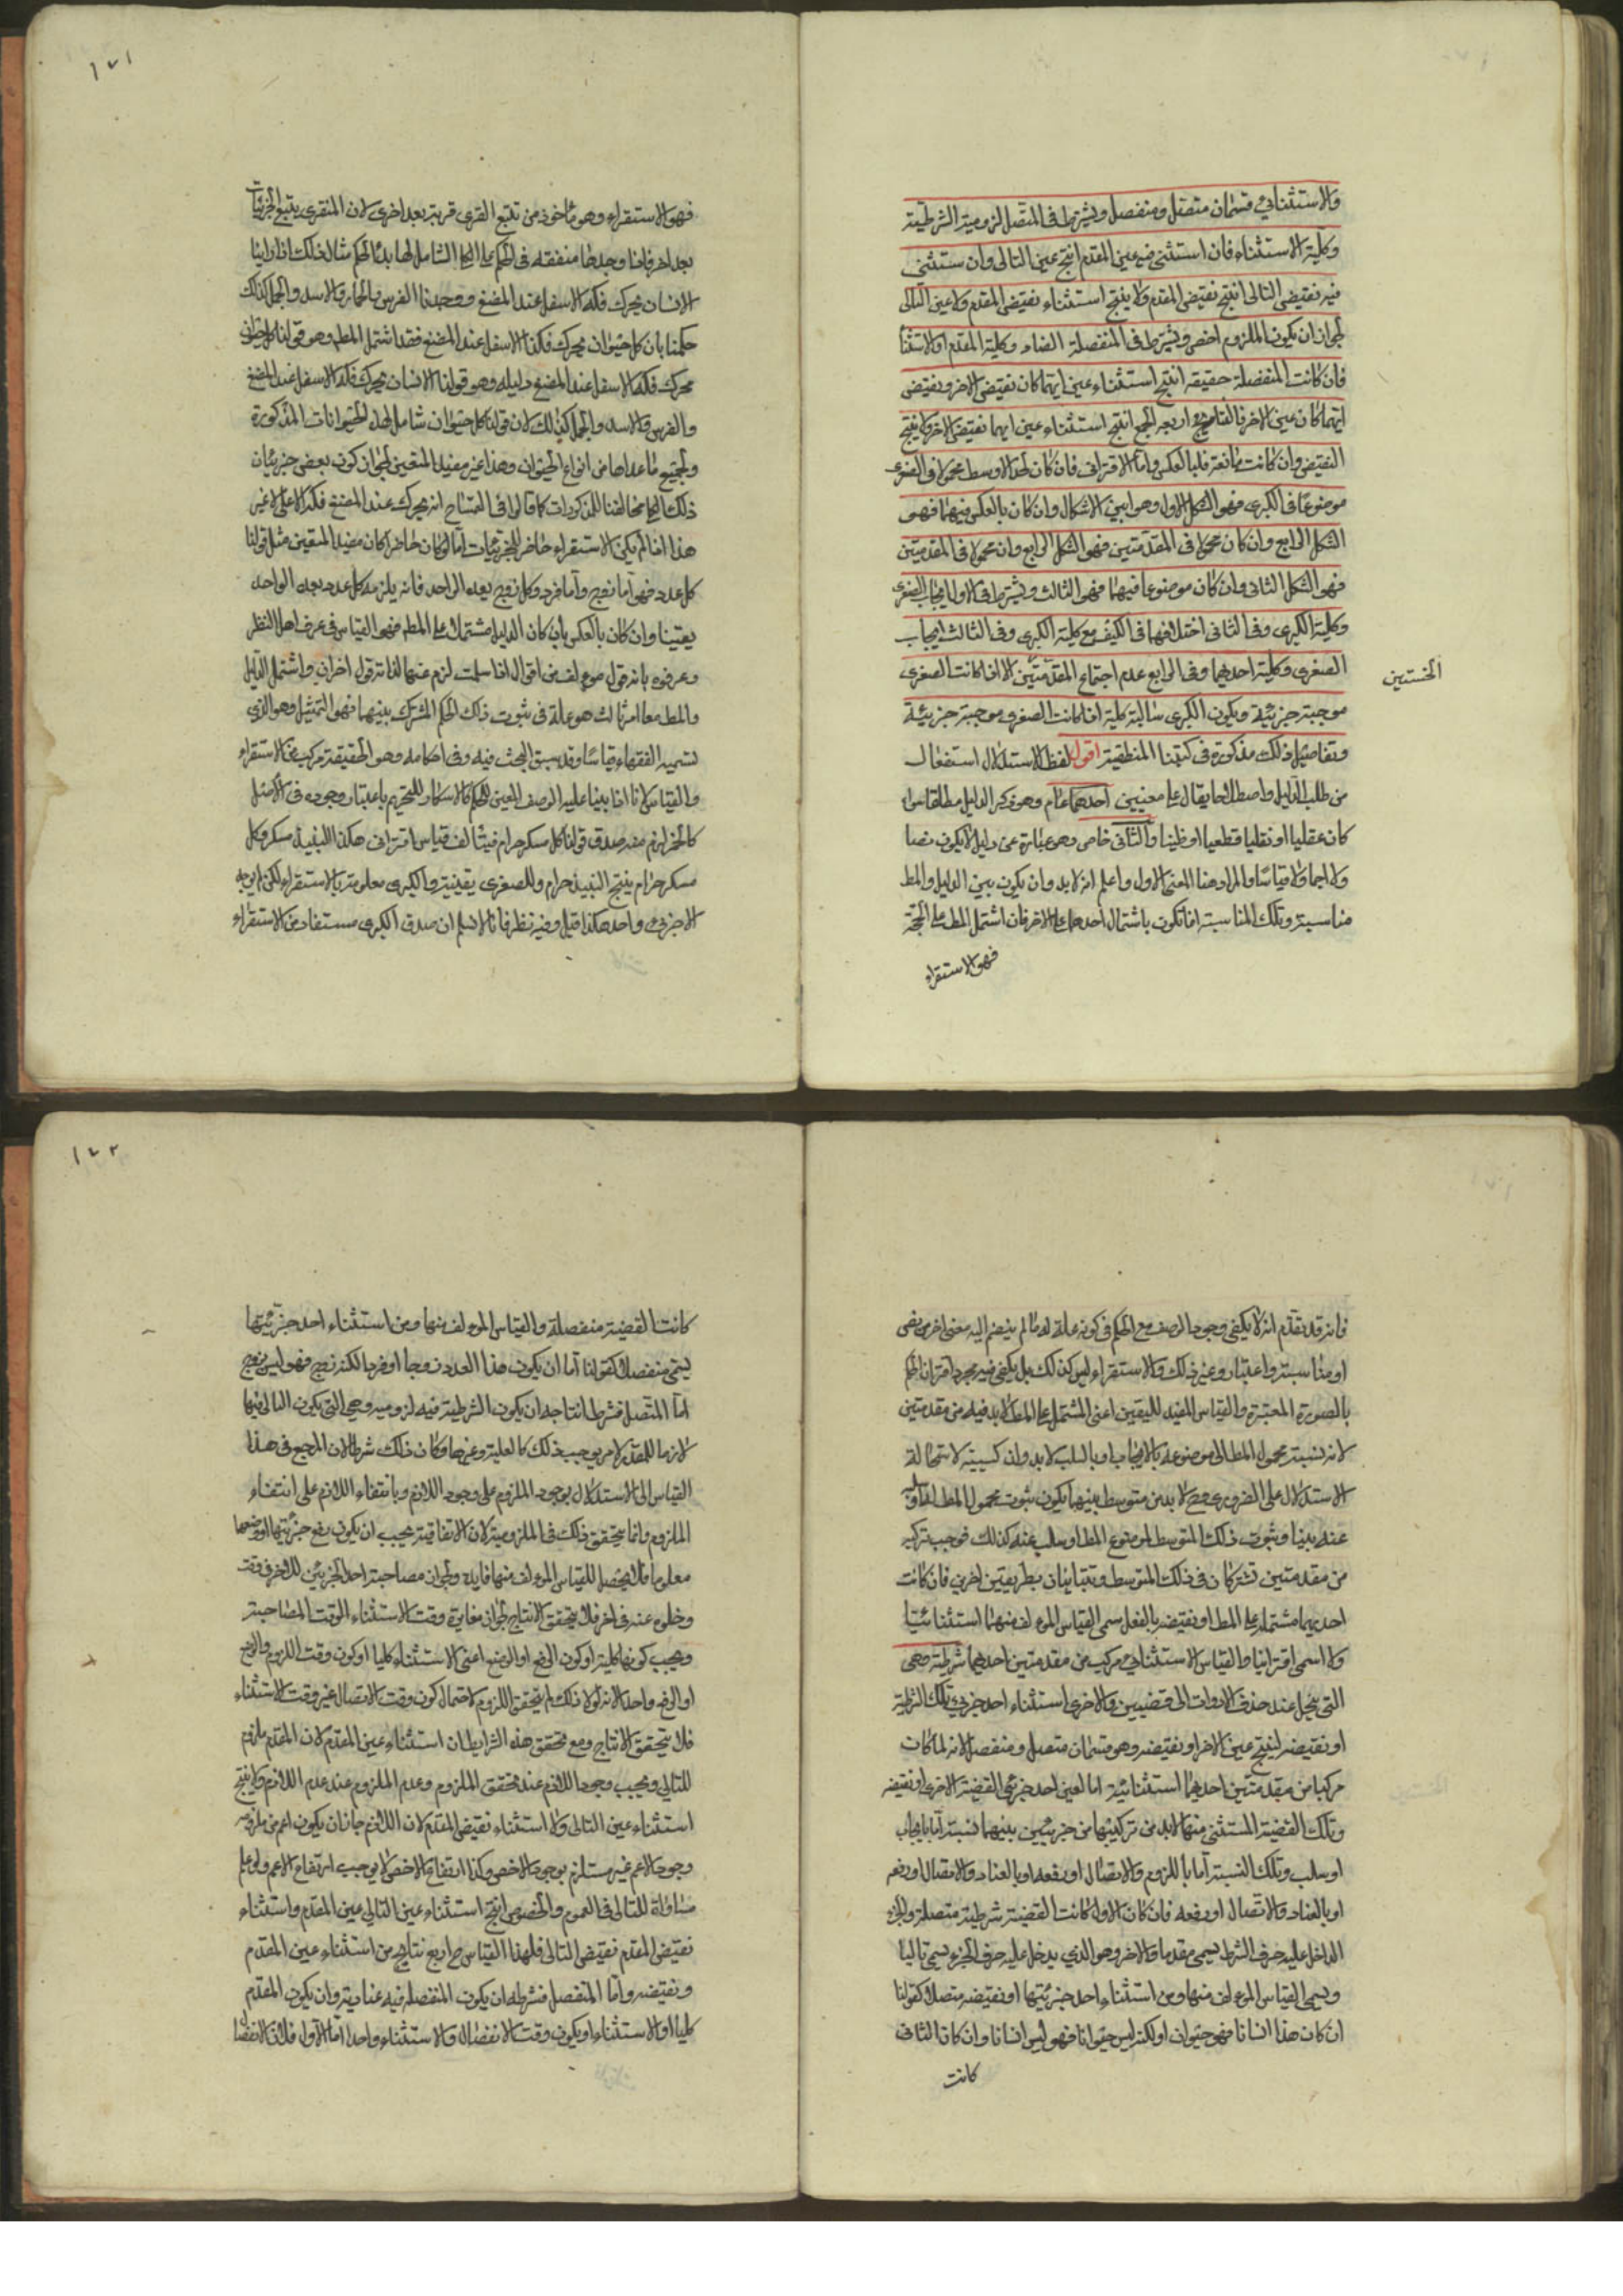 والاستثنائي قسمان متصل ومنفصل ويشترط في المتصل لزومية الشرطية
وكلية الاستثناء فان استثنى فيه عين المقدم انتج عين التالى وان ستثنى
فيه نقيض التالى انتج نقيض المقدم ولا ينتج استثناء نقيض المقدم ولا عين التالى
لجواز ان يكون الملزوم اخص ويشترط في المنفصلة العناد وكلية المقدم او الاستثنا
فان كانت المنفصلة حقيقة انتج استثناء عين ايهما كان نقيض الاخر ونقيض
ايهما كان عين الاخر اربعه الجمع انتج استثناء عين ايهما نقيض الاخر ولا ينتج
النقيض وان كانت مانعة فلبالعكس واما الاقترانى فان كان الحد الاوسط محمولا في الصغرى
موضوعا في الكبرى فهو الشكل الاول وهو ابين الاشكال وان كان بالعكس فيهما فهو
الشكل الرابع وان كان محمولا في المقدمتين فهو الشكل الرابع وان محمولا في المقدمتين
فهى الشكل الثانى وان كان موضوعا فيهما فهو الثالث ويشترط في الاول ايجاب الصغرى
وكلية الكبرى وفي الثانى اختلافهما في الكيف مع كلية الكبرى وفي الثالث ايجاب
الصغرى وكلية احديهما وفي الرابع عدم اجتماع المقدمتين الا اذا كانت الصغرى
الخستين
موجبة جزئية ويكون الكبرى سالبة كلية اذا كانت الصغرى موجبة جزئية
وتفاصيل ذلك مذكورة في كتبنا المنطقية اقول لفظ الاستدلال استفعال
من طلب الدليل واصطلاحا يقال على معنيين احدهما عام وهو ذكر الدليل مطلقا سوا
كان عقليا او نقليا قطعيا او ظنيا والثانى خاص وهو عبارة عن دليل لا يكون نصا
ولا اجماعا ولا قياسا والمراد هنا المعنى الاول واعلم انه لابد وان يكون بين الدليل والمط
مناسبة وتلك المناسبة اما تكون باشتمال احدهما على الاخر فان اشتمل المط على الحجة
فهو الاستقراء
١٧١
فهو الاستقراء وهو مأخوذ من تتبع القرى قرية بعد اخرى لان المستقرى يتتبع الجزئيات
الانسان يحرك فكه الاسفل عند المضغ ووجدنا الفرس والحمار والاسد والجمل كذلك
حكمنا بان كل حيوان محرك فكه الاسفل عند المضغ فقد اشتمل المط وهو قولنا كل حيوان
محرك فكه الاسفل عند المضغ دليله وهو قولنا الانسان يحرك فكه الاسفل عند المضغ
والفرس والاسد والجمل كذلك لان قولنا كل حيوان شامل لهذه الحيوانات المذكورة
ولجميع ما عداها من انواع الحيوان وهذا غير مفيد اليقين لجواز كون بعض جزئيات
ذلك الكلى مخالفا للمذكورات كما قالوا في التمساح انه يحرك عند المضغ فكه الاعلى لا غير
هذا اذا لم يكن الاستقراء حاصرا للجزئيات اما لو كان حاصرا كان مفيد اليقين مثل قولنا
كل عدد فهو اما زوج واما فرد وكل زوج يعده الواحد فانه يلزم كل عدد يعده الواحد
يقينا وان كان بالعكس بان كان الدليل مشتملا على المط فهو القياس في عرف اهل النظر
وعرفوه بانه قول مؤلف من اقوال اذا سلمت لزم عنها لذاته قول اخر وان اشتمل الدليل
والمط معا امر ثالث هو علة في ثبوت ذلك الحكم المشترك بينهما فهو التمثيل وهو الذى
تسميه الفقهاء قياسا وقد سبق البحث فيه وفي احكامه وهو في الحقيقة مركب من الاستقراء
والقياس لانا اذا بينا علية الوصف المعين للحكم كالاسكار للتحريم باعتبار وجوده في الاصل
كالخمر لزم منه صدق قولنا كل مسكر حرام فيتألف قياس اقترانى هكذا النبيذ مسكر وكل
مسكر حرام ينتج النبيذ حرام والصغرى يقينية والكبرى معلومة بالاستقراء لكن لم يوجد
الا جزئى واحد هكذا قيل وفيه نظر فانا لا نسلم ان صدق الكبرى مستفاد من الاستقراء
فانه قد تقدم انه لا يكفى وجود الوصف مع الحكم في كونه علة له ما لم ينضم اليه معنى اخر من نص
او مناسبة واعتبار وغير ذلك والاستقراء ليس كذلك بل يكفى فيه مجرد اقتران الحكم
بالصورة المعتبرة والقياس المفيد لليقين اعنى المشتمل على المط لابد فيه من مقدمتين
لان نسبة محمول المط الى موضوعه بالايجاب او بالسلب لابد وان كسبية لاستحالة
الاستدلال على الضرورى فلا بد من متوسط بينهما يكون ثبوت محمول المط له او
عنه بينا وثبوت ذلك المتوسط لموضوع المط او سلبه عنه كذلك فوجب تركبه
من مقدمتين تشتركان في ذلك المتوسط وتتباينان بطرفيتين اخريين فان كانت
احديهما مشتملة على المط او نقيضه بالفعل سمى القياس المؤلف منهما استثنائيا
والا سمى اقترانيا والقياس الاستثنائي مركب من مقدمتين احديهما شرطية وهى
التى ينحل عند حذف الادوات الى قضيتين والاخرى استثناء احد جزئي تلك الشرطية
او نقيضه لينتج عين الاخر او نقيضه وهو قسمان متصل ومنفصل لانه لما كان
مركبا من مقدمتين احديهما استثنائية اما لعين احد جزئي القضية الاخرى او نقيضه
وتلك القضية المستثنى منها لابد من تركيبها من جزئين بينهما نسبة اما بايجاب
او سلب وتلك النسبة اما باللزوم والاتصال او رفعه او بالعناد والانفصال او رفعه
او بالعناد والاتصال او رفعه فان كان الاول كانت القضية شرطية متصلة والجزء
الداخل عليه حرف الشرط يسمى مقدما والاخر وهو الذي يدخل عليه حرف الجزاء يسمى تاليا
ويسمى القياس المؤلف منها ومن استثناء احد جزئيتها او نقيضه متصلا كقولنا
ان كان هذا انسانا فهو حيوان او لكنه ليس حيوانا فهو ليس انسانا وان كان الثانى
كانت
١٧٢
كانت القضية منفصلة والقياس المؤلف منها ومن استثناء احد جزئيتها
يسمى منفصلا كقولنا اما ان يكون هذا العدد زوجا او فردا لكنه زوج فهو ليس بزوج
اما المتصل فشرط انتاجه ان يكون الشرطية فيه لزومية وهى التى يكون التالى فيها
لازما للمقدم لامر يوجب ذلك كالعلية وغيرها وكان ذلك شرطا لان المرجع في هذا
القياس الى الاستدلال بوجود الملزوم على وجود اللازم وبانتفاء اللازم على انتفاء
الملزوم وانما يتحقق ذلك في الملزومية لان الاتفاقية يجب ان يكون رفع جزئيتها او وضعها
معلوما فلا يحصل للقياس المؤلف منها فايدة ولجواز مصاحبة احد الجزئين للاخر في وقت
وخلوه عنه في اخر فلا يتحقق الانتاج لجواز مغايرة وقت الاستثناء لوقت المصاحبة
ويجب كونها كلية او كون الرفع او الوضع اعنى الاستثناء كليا او كون وقت اللزوم والوضع
او الرفع واحدا لانه لولا ذلك لم يتحقق اللزوم لاحتمال كون وقت الاتصال غير وقت الاستثناء
فلا يتحقق الانتاج ومع تحقق هذه الشرايط ان استثناء عين المقدم لان المقدم ملزوم
للتالى ويجب وجود اللازم عند تحقق الملزوم وعدم الملزوم عند عدم اللازم ولا ينتج
استثناء عين التالى ولا استثناء نقيض المقدم لان اللازم جاز ان يكون اعم من ملزومه
ووجود الاعم غير مستلزم بوجود الاخص وكذا ارتفاع الاخص لا يوجب ارتفاع الاعم ولو علم
مساواة للتالى في العموم والخصوص انتج استثناء عين التالى عين المقدم واستثناء
نقيض المقدم نقيض التالى فلهذا القياس ح اربع نتايج من استثناء عين المقدم
ونقيضه واما المنفصل فشرطه ان يكون المنفصلة فيه عنادية وان يكون المقدم
كليا او الاستثناء او يكون وقت الانفصال والاستثناء واحدا اما الاول فلان الانفصال